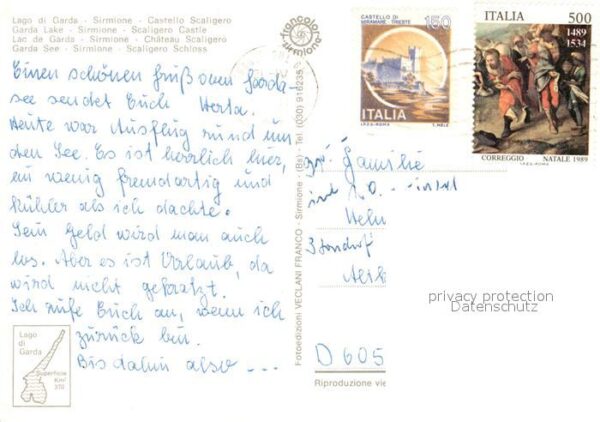 Lago di Garda - Sirmione - Castello Scaligero
Garda Lake - Sirmione - Scaligero Castle
Lac de Garda - Sirmione - Château Scaligero
Garda See - Sirmione - Scaligero Schloss
Einen schönen Gruß vom Garda-
see sendet Euch Herta.
Heute war Ausflug rund um
den See. Es ist herrlich hier,
ein wenig fremdartig und
kühler als ich dachte.
Sein Geld wird man auch
los. Aber es ist Urlaub, da
wird nicht gekratzt.
Ich rufe Euch an, wenn ich
zurück bin.
Bis dahin also ---
Lago
di
Garda
Superficie
Km²
370
francolor
sirmione
Fotoedizioni VECLANI FRANCO - Sirmione - (Bs) - Tel. (030) 916235
CASTELLO DI
MIRAMARE - TRIESTE
150
ITALIA
I.P.Z.S.-ROMA
T. MELE
ITALIA 500
1489
1534
CORREGGIO NATALE 1989
I.P.Z.S.-ROMA
Familie
D 605
Riproduzione vie
privacy protection
Datenschutz